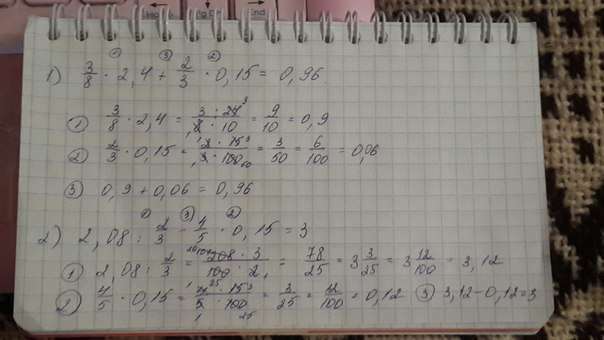 ① ③ ②
1) 3/8 · 2,4 + 2/3 · 0,15 = 0,96
① 3/8 · 2,4 = 3 · 24 3/1 8 · 10 = 9/10 = 0,9
② 2/3 · 0,15 = 1 2 · 15 3/1 3 · 100 50 = 3/50 = 6/100 = 0,06
③ 0,9 + 0,06 = 0,96
① ③ ②
2) 2,08 : 2/3 - 4/5 · 0,15 = 3
① 2,08 : 2/3 = 208 · 3/100 · 2 = 78/25 = 3 3/25 = 3 12/100 = 3,12
② 4/5 · 0,15 = 4 · 15 3/5 · 100 25 = 3/25 = 12/100 = 0,12 ③ 3,12 - 0,12 = 3